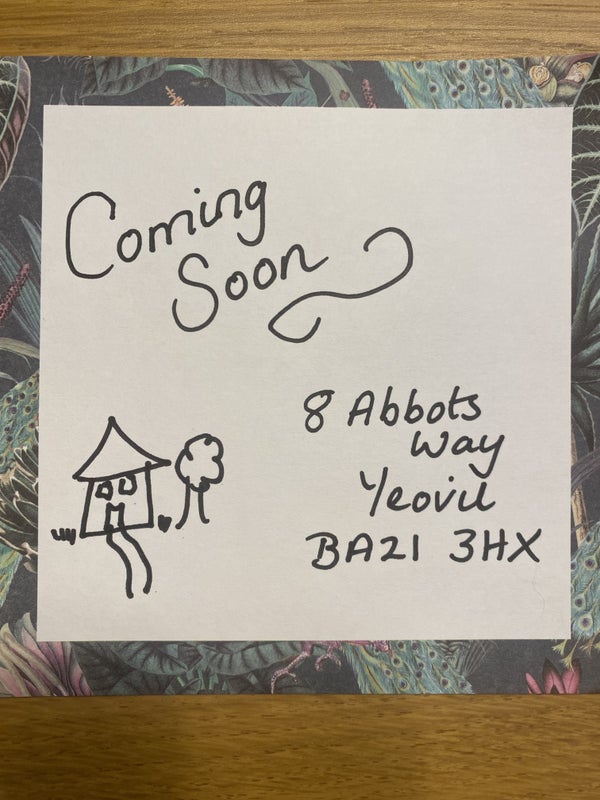 Coming
Soon
8 Abbots
Way
Yeovil
BA21 3HX